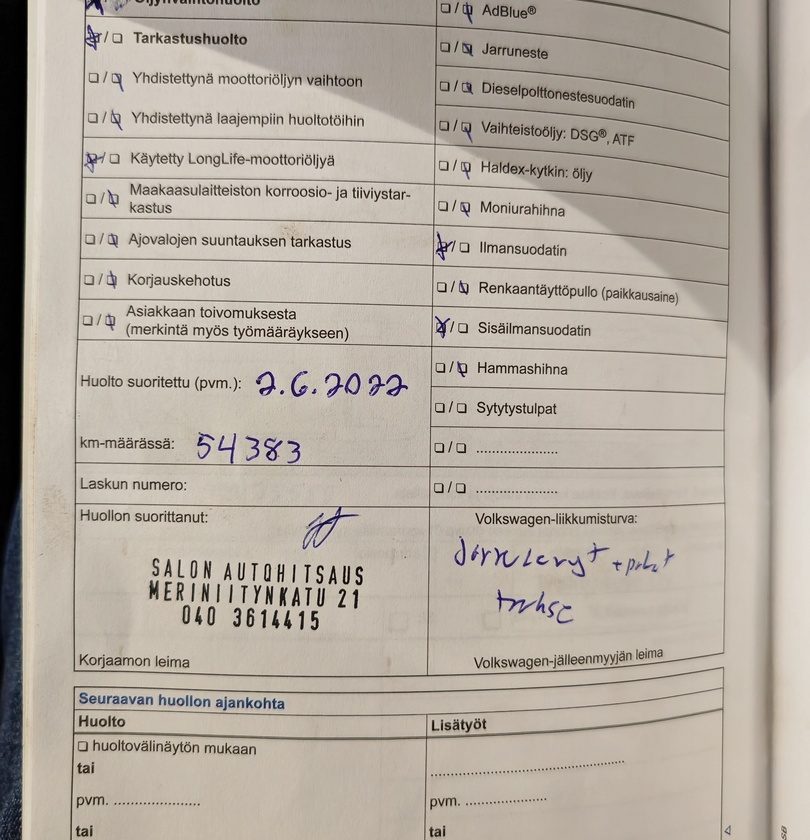 Öljynvaihtohuolto
Tarkastushuolto
Yhdistettynä moottoriöljyn vaihtoon
Yhdistettynä laajempiin huoltotöihin
Käytetty LongLife-moottoriöljyä
Maakaasulaitteiston korroosio- ja tiiviystar-
kastus
Ajovalojen suuntauksen tarkastus
Korjauskehotus
Asiakkaan toivomuksesta
(merkintä myös työmääräykseen)
Huolto suoritettu (pvm.): 2.6.2022
km-määrässä: 54383
Laskun numero:
Huollon suorittanut:
SALON AUTOHITSAUS
MERINIITYNKATU 21
040 3614415
Korjaamon leima
AdBlue®
Jarruneste
Dieselpolttonestesuodatin
Vaihteistoöljy: DSG®, ATF
Haldex-kytkin: öljy
Moniurahihna
Ilmansuodatin
Renkaantäyttöpullo (paikkausaine)
Sisäilmansuodatin
Hammashihna
Sytytystulpat
Volkswagen-liikkumisturva:
Jarrulevyt + palat
Volkswagen-jälleenmyyjän leima
Seuraavan huollon ajankohta
Huolto
huoltovälinäytön mukaan
tai
pvm. ....................
tai
Lisätyöt
pvm. ....................
tai